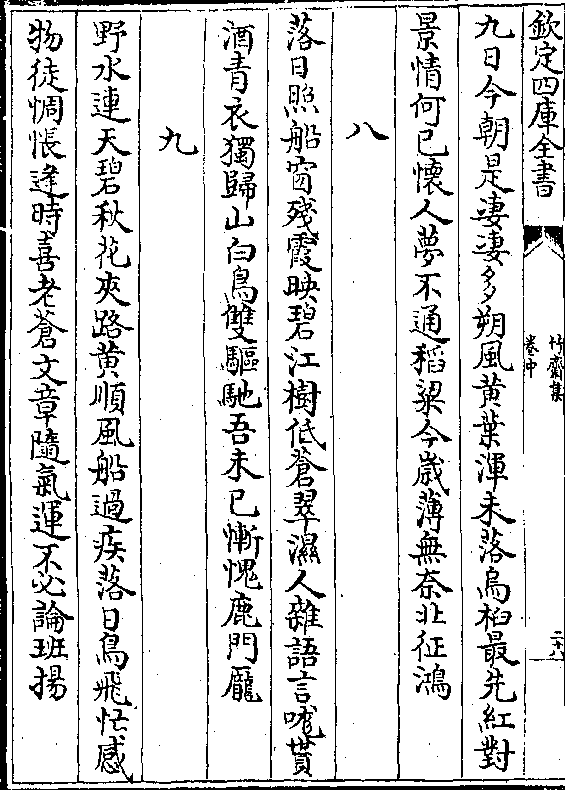 欽定四庫全書
竹齋集
卷中
九日今朝是凄凄多朔風黄葉渾未落烏桕最先紅對
景情何已懷人夢不通稻粱今嵗薄無奈北征鴻
八
落日照船窗殘霞映碧江樹低蒼翠濕人雜語言哤貰
酒青衣獨歸山白鳥雙驅馳吾未已慚愧鹿門龐
九
野水連天碧秋花夾路黄順風船過疾落日鳥飛忙感
物徒惆悵逢時喜老蒼文章隨氣運不必論班揚